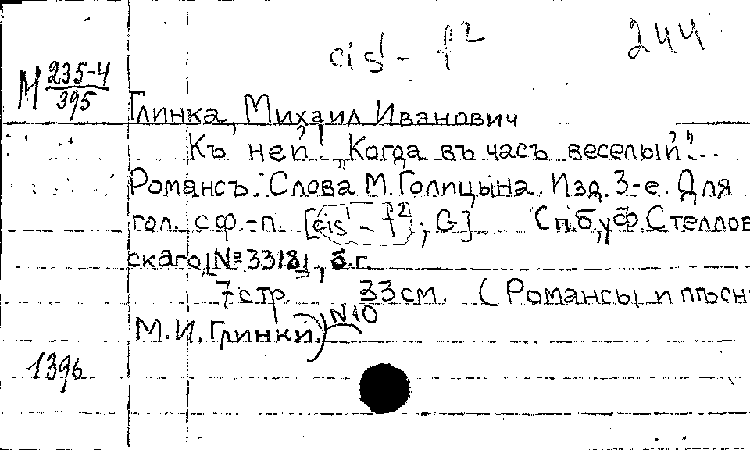 cis¹ - f² 244
М 235-4/395
Глинка, Михаил Иванович
Къ ней! „Когда въ часъ веселый"..
Романсъ. Слова М. Голицына. Изд. 3-е. Для
гол. с ф.-п. [cis¹ - f²; G] Спб, у Ф. Стеллов
скаго, [№ 3318], б. г.
7 стр. 33 см. (Романсы и пѣсн
М. И. Глинки.) №10
1396